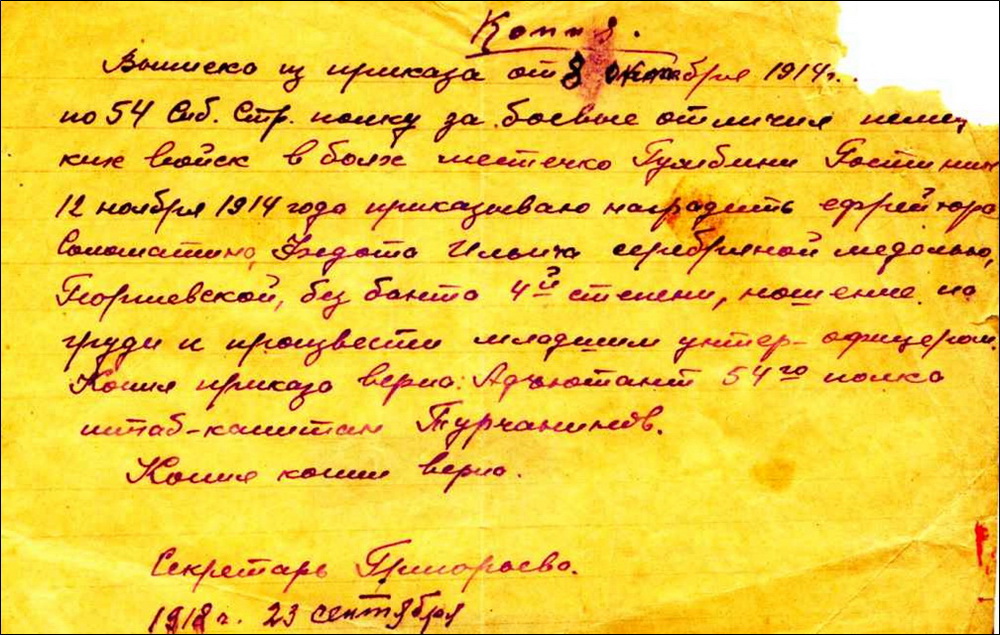 Копия.
Выписка из приказа от 8 октября 1914 г.
по 54 Сиб. Стр. полку за боевые отличия немец
ких войск в боях местечко Гумбини
12 ноября 1914 года приказываю наградить ефрейтора
Соломатина, Федота Ильича серебряной медалью,
Георгиевской, без банта 4й степени, ношение на
груди и произвести младшим унтер-офицером.
Копия приказа верна: Адъютант 54го полка
штаб-капитан Турчанинов.
Копия копии верна.
Секретарь Григорьева.
1918 г. 23 сентября